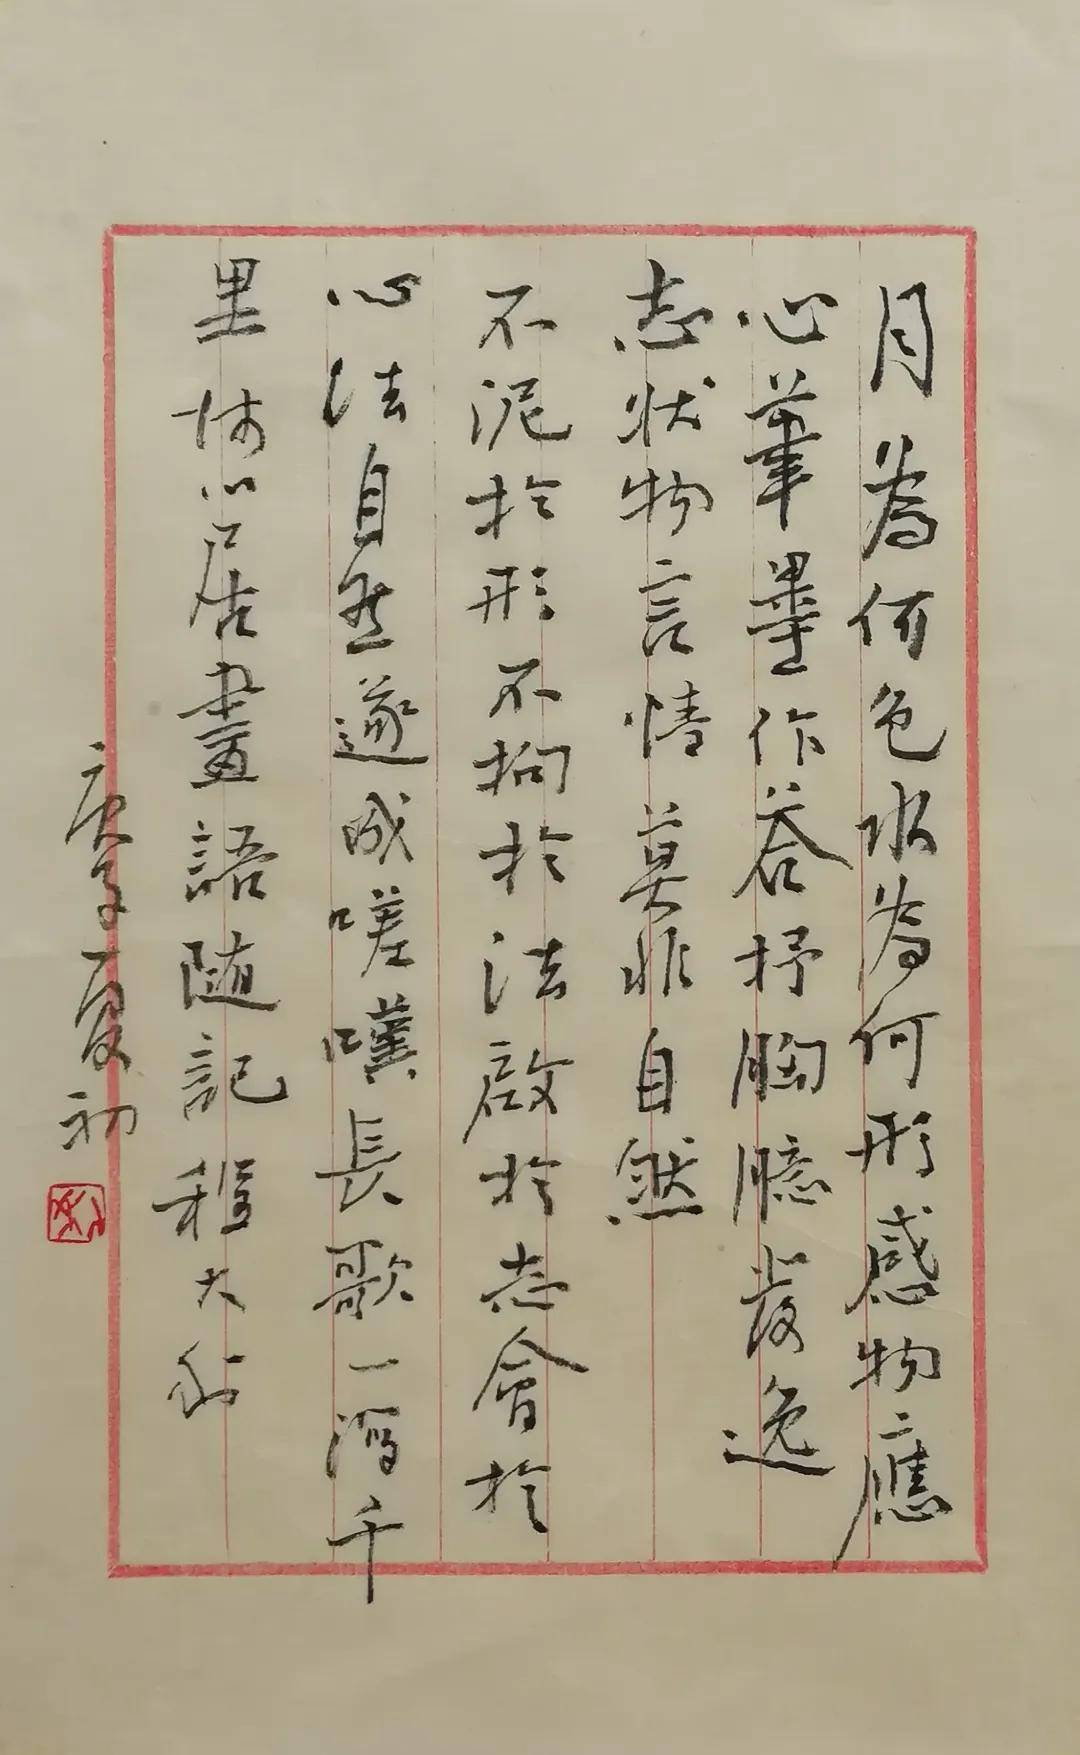 月為何色水為何形感物應
心筆墨作答抒胸臆發逸
志狀物言情莫非自然
不泥於形不拘於法啟於志會於
心法自然遂成嗟嘆長歌一瀉千
里 居畫語隨記程大利
庚子夏初